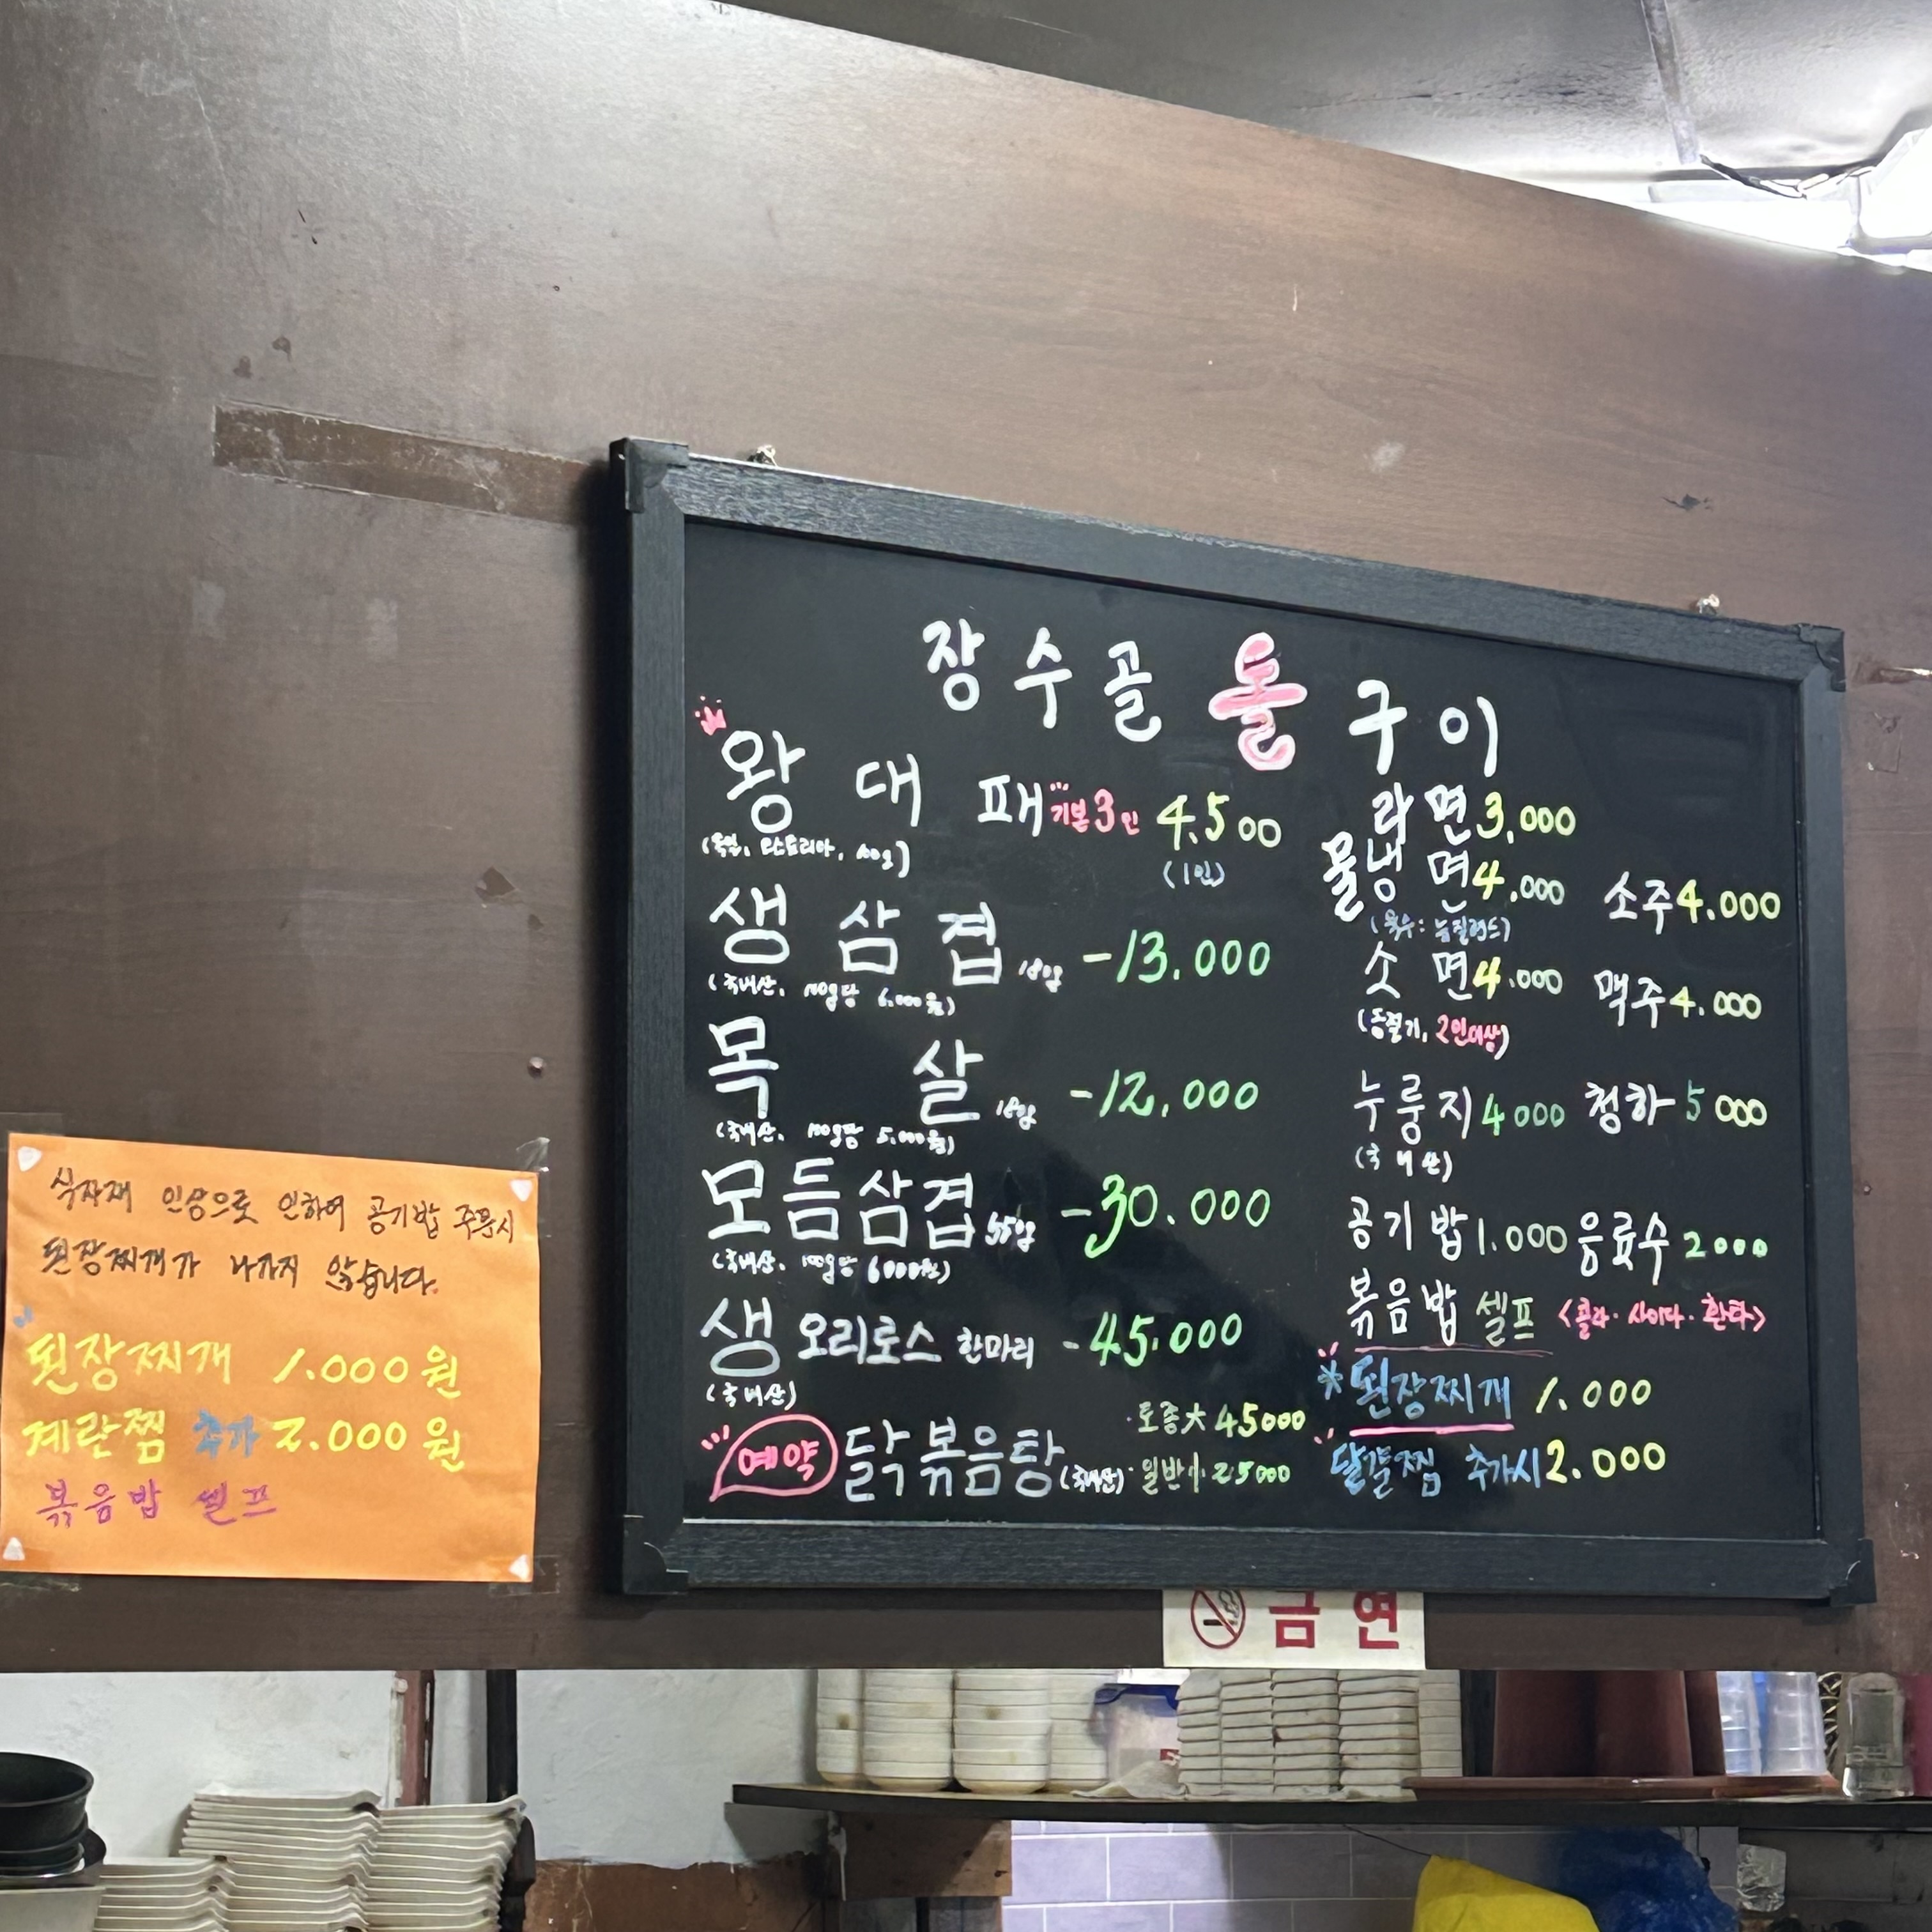 장수골 돌구이
왕대패 기본3인 4.500
(독일, 오스트리아, 100g)
(1인)
생삼겹 180g -13.000
(국내산, 100g당 6.000원)
목살 180g -12.000
(국내산, 100g당 5.000원)
모듬삼겹 -30.000
(국내산, 100g당 6000원)
생오리로스 한마리 -45.000
(국내산)
예약 닭볶음탕 (국내산)
·토종大 45000
·일반小 25000
라면 3.000
물냉면 4.000
(육수: 뉴질랜드)
소면 4.000
(동절기, 2인이상)
누룽지 4000
(국내산)
공기밥 1.000
볶음밥 셀프
*된장찌개 1.000
달걀찜 추가시 2.000
소주 4.000
맥주 4.000
청하 5000
음료수 2000
<콜라·사이다·환타>
식자재 인상으로 인하여 공기밥 주문시
된장찌개가 나가지 않습니다.
된장찌개 1.000원
계란찜 추가 2.000원
볶음밥 셀프
금연